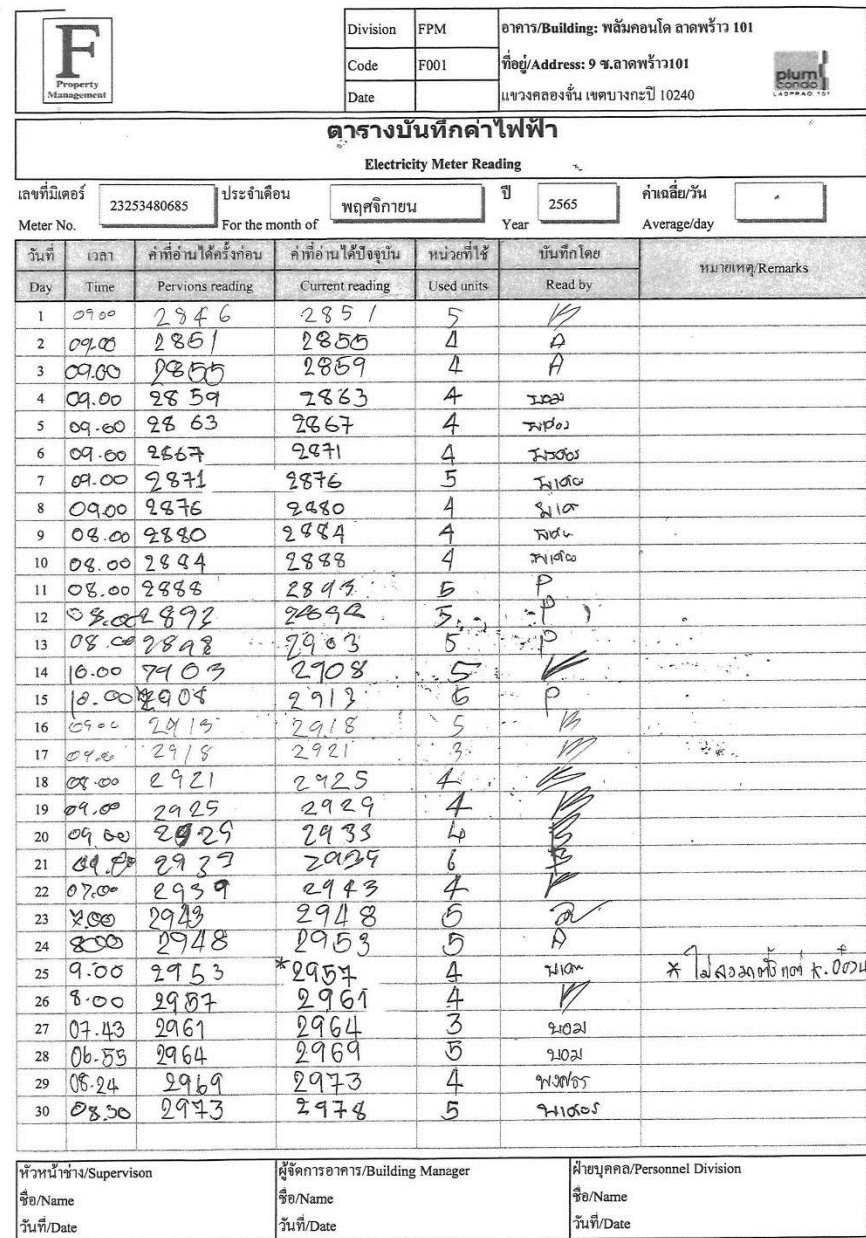 F
Property
Management
Division FPM อาคาร/Building: พลัมคอนโด ลาดพร้าว 101
Code F001 ที่อยู่/Address: 9 ซ.ลาดพร้าว101
Date แขวงคลองจั่น เขตบางกะปิ 10240
plum
condo
LADPRAO 101
ตารางบันทึกค่าไฟฟ้า
Electricity Meter Reading
เลขที่มิเตอร์ 23253480685 ประจำเดือน พฤศจิกายน ปี 2565 ค่าเฉลี่ย/วัน
Meter No. For the month of Year Average/day
วันที่ เวลา ค่าที่อ่านได้ครั้งก่อน ค่าที่อ่านได้ปัจจุบัน หน่วยที่ใช้ บันทึกโดย หมายเหตุ/Remarks
Day Time Pervions reading Current reading Used units Read by
1 09.00 2846 2851 5
2 09.00 2851 2855 4 A
3 09.00 2855 2859 4 A
4 09.00 2859 2863 4 บอม
5 09.00 2863 2867 4
6 09.00 2867 2871 4
7 09.00 2871 2876 5
8 09.00 2876 2880 4
9 08.00 2880 2884 4
10 08.00 2884 2888 4
11 08.00 2888 2893 5 P
12 08.00 2893 5 P
13 08.00 2898 2903 5 P
14 10.00 2903 2908 5
15 2908 2913 5 P
16 09.00 2913 2918 5
17 09.00 2918 2921 3
18 08.00 2921 2925 4
19 09.00 2925 2929 4
20 09.00 2929 2933 4
21 09.00 2933 2939 6
22 07.00 2939 2943 4
23 7.00 2943 2948 5
24 8.00 2948 2953 5 A
25 9.00 2953 *2957 4
26 8.00 2957 2961 4
27 07.43 2961 2964 3 บอม
28 06.55 2964 2969 5 บอม
29 08.24 2969 2973 4 พงศธร
30 08.30 2973 2978 5
หัวหน้าช่าง/Supervison ผู้จัดการอาคาร/Building Manager ฝ่ายบุคคล/Personnel Division
ชื่อ/Name ชื่อ/Name ชื่อ/Name
วันที่/Date วันที่/Date วันที่/Date